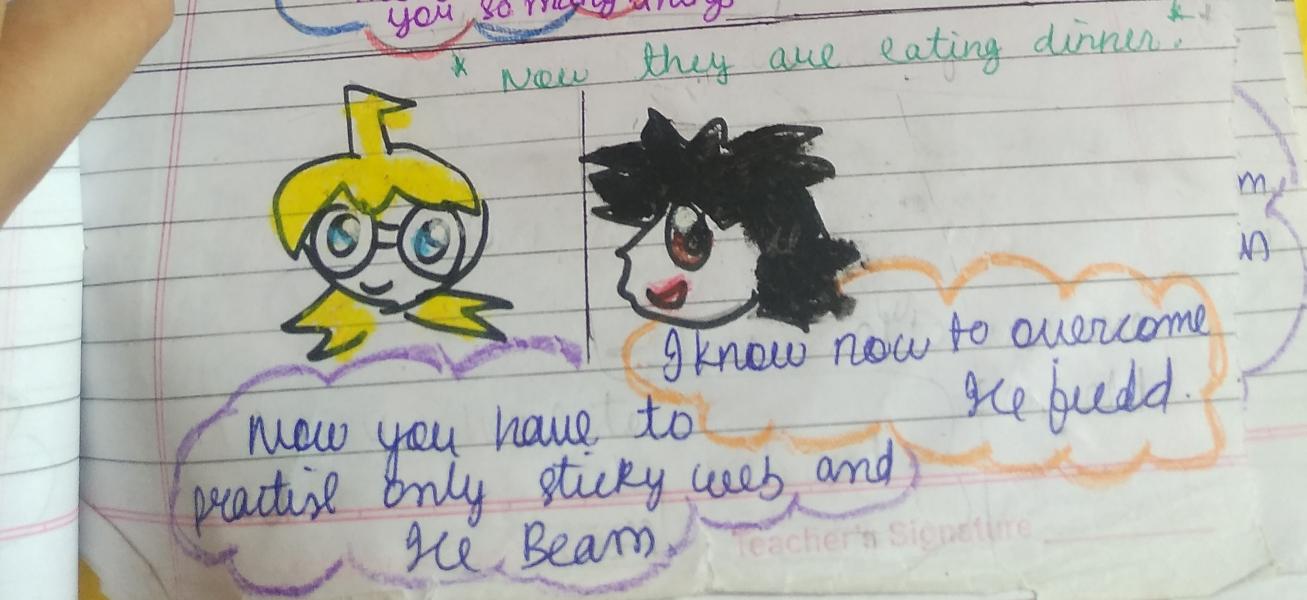 you so many things
* Now they are eating dinner. *
I know now to overcome
Ice field.
Now you have to
practise only sticky web and
Ice Beam.
Teacher's Signature
m